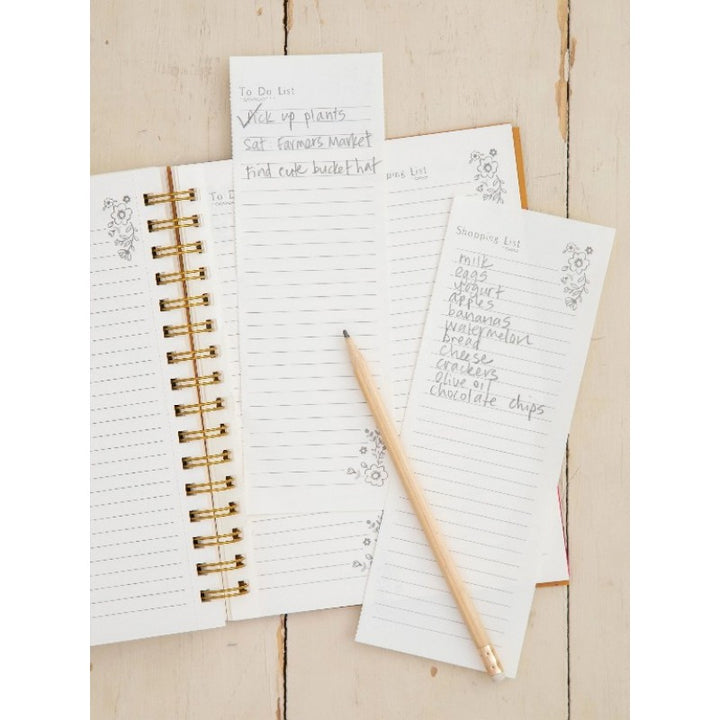 To Do List
Pick up plants
Sat: Farmers Market
Find cute bucket hat
To D
ping List
Shopping List
milk
eggs
yogurt
apples
bananas
watermelon
bread
cheese
crackers
Olive oil
chocolate chips